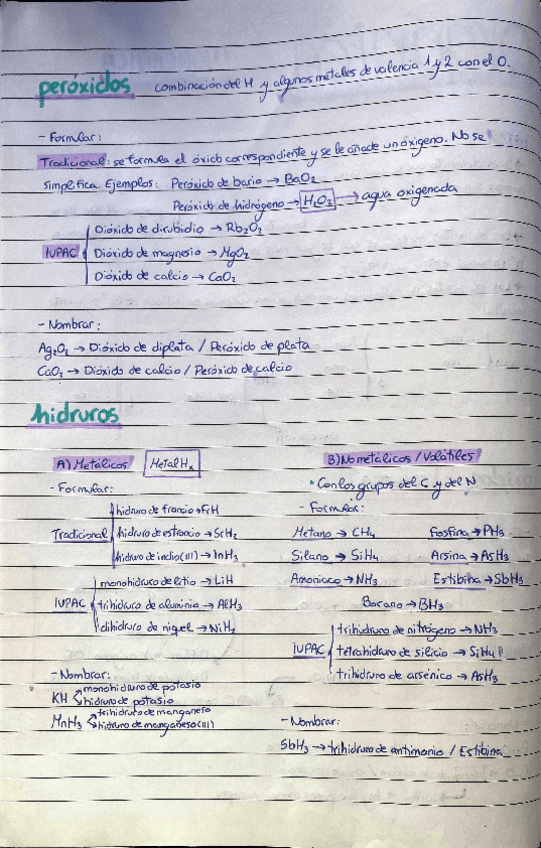 peróxidos combinación del H y algunos metales de valencia 1 y 2 con el O.
- Formular:
Tradicional: se formula el óxido correspondiente y se le añade un oxígeno. No se
simplifica. Ejemplos: Peróxido de bario → BaO₂
Peróxido de hidrógeno → H₂O₂ → agua oxigenada
IUPAC
Dióxido de dirubidio → Rb₂O₂
Dióxido de magnesio → MgO₂
Dióxido de calcio → CaO₂
- Nombrar:
Ag₂O₂ → Dióxido de diplata / Peróxido de plata
CaO₂ → Dióxido de calcio / Peróxido de calcio
hidruros
A) Metálicos Metal Hₓ
- Formular:
Tradicional
hidruro de francio → FrH
hidruro de estroncio → SrH₂
hidruro de indio (III) → InH₃
IUPAC
monohidruro de litio → LiH
trihidruro de aluminio → AlH₃
dihidruro de niquel → NiH₂
- Nombrar:
KH
monohidruro de potasio
hidruro de potasio
MnH₃
trihidruro de manganeso
hidruro de manganeso (III)
B) No metálicos / Volátiles
* Con los grupos del C y del N
- Formular:
Metano → CH₄ Fosfina → PH₃
Silano → SiH₄ Arsina → AsH₃
Amoniaco → NH₃ Estibina → SbH₃
Borano → BH₃
IUPAC
trihidruro de nitrógeno → NH₃
tetrahidruro de silicio → SiH₄
trihidruro de arsénico → AsH₃
- Nombrar:
SbH₃ → trihidruro de antimonio / Estibina